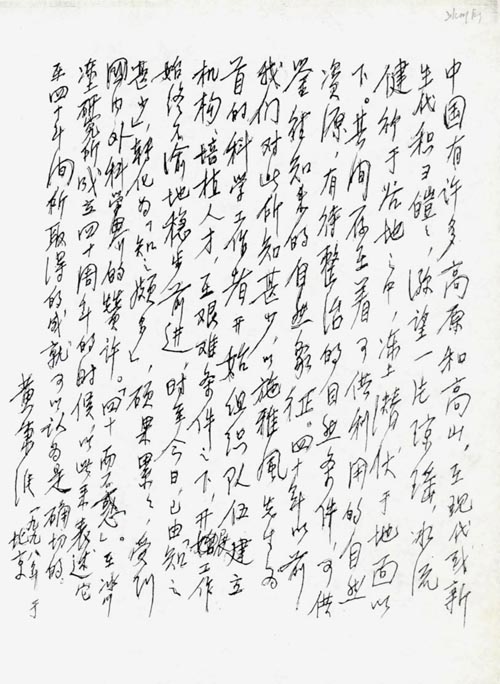 中国有许多高原和高山，在现代或新
生代积雪皑皑，极望一片琼瑶，冰流
伸于谷地之中，冻土潜伏于地面以
下。其间存在着可供利用的自然
资源，有待整治的自然条件，可供
鉴往知来的自然象征。四十年以前
我们对此所知甚少，以施雅风先生为
首的科学工作者开始组织队伍建立
机构，培植人才，在艰难条件之下，开展工作
始终不渝地稳步前进，时至今日，已由「知之
甚少」，转化为「知之颇多」，硕果累累，受到
国内外科学界的赞许。「四十而不惑」。在冰川
冻土研究所成立四十周年的时候，以此来表述它
在四十年间所取得的成就可以认为是确切的
黄秉维 一九九八年于
北京